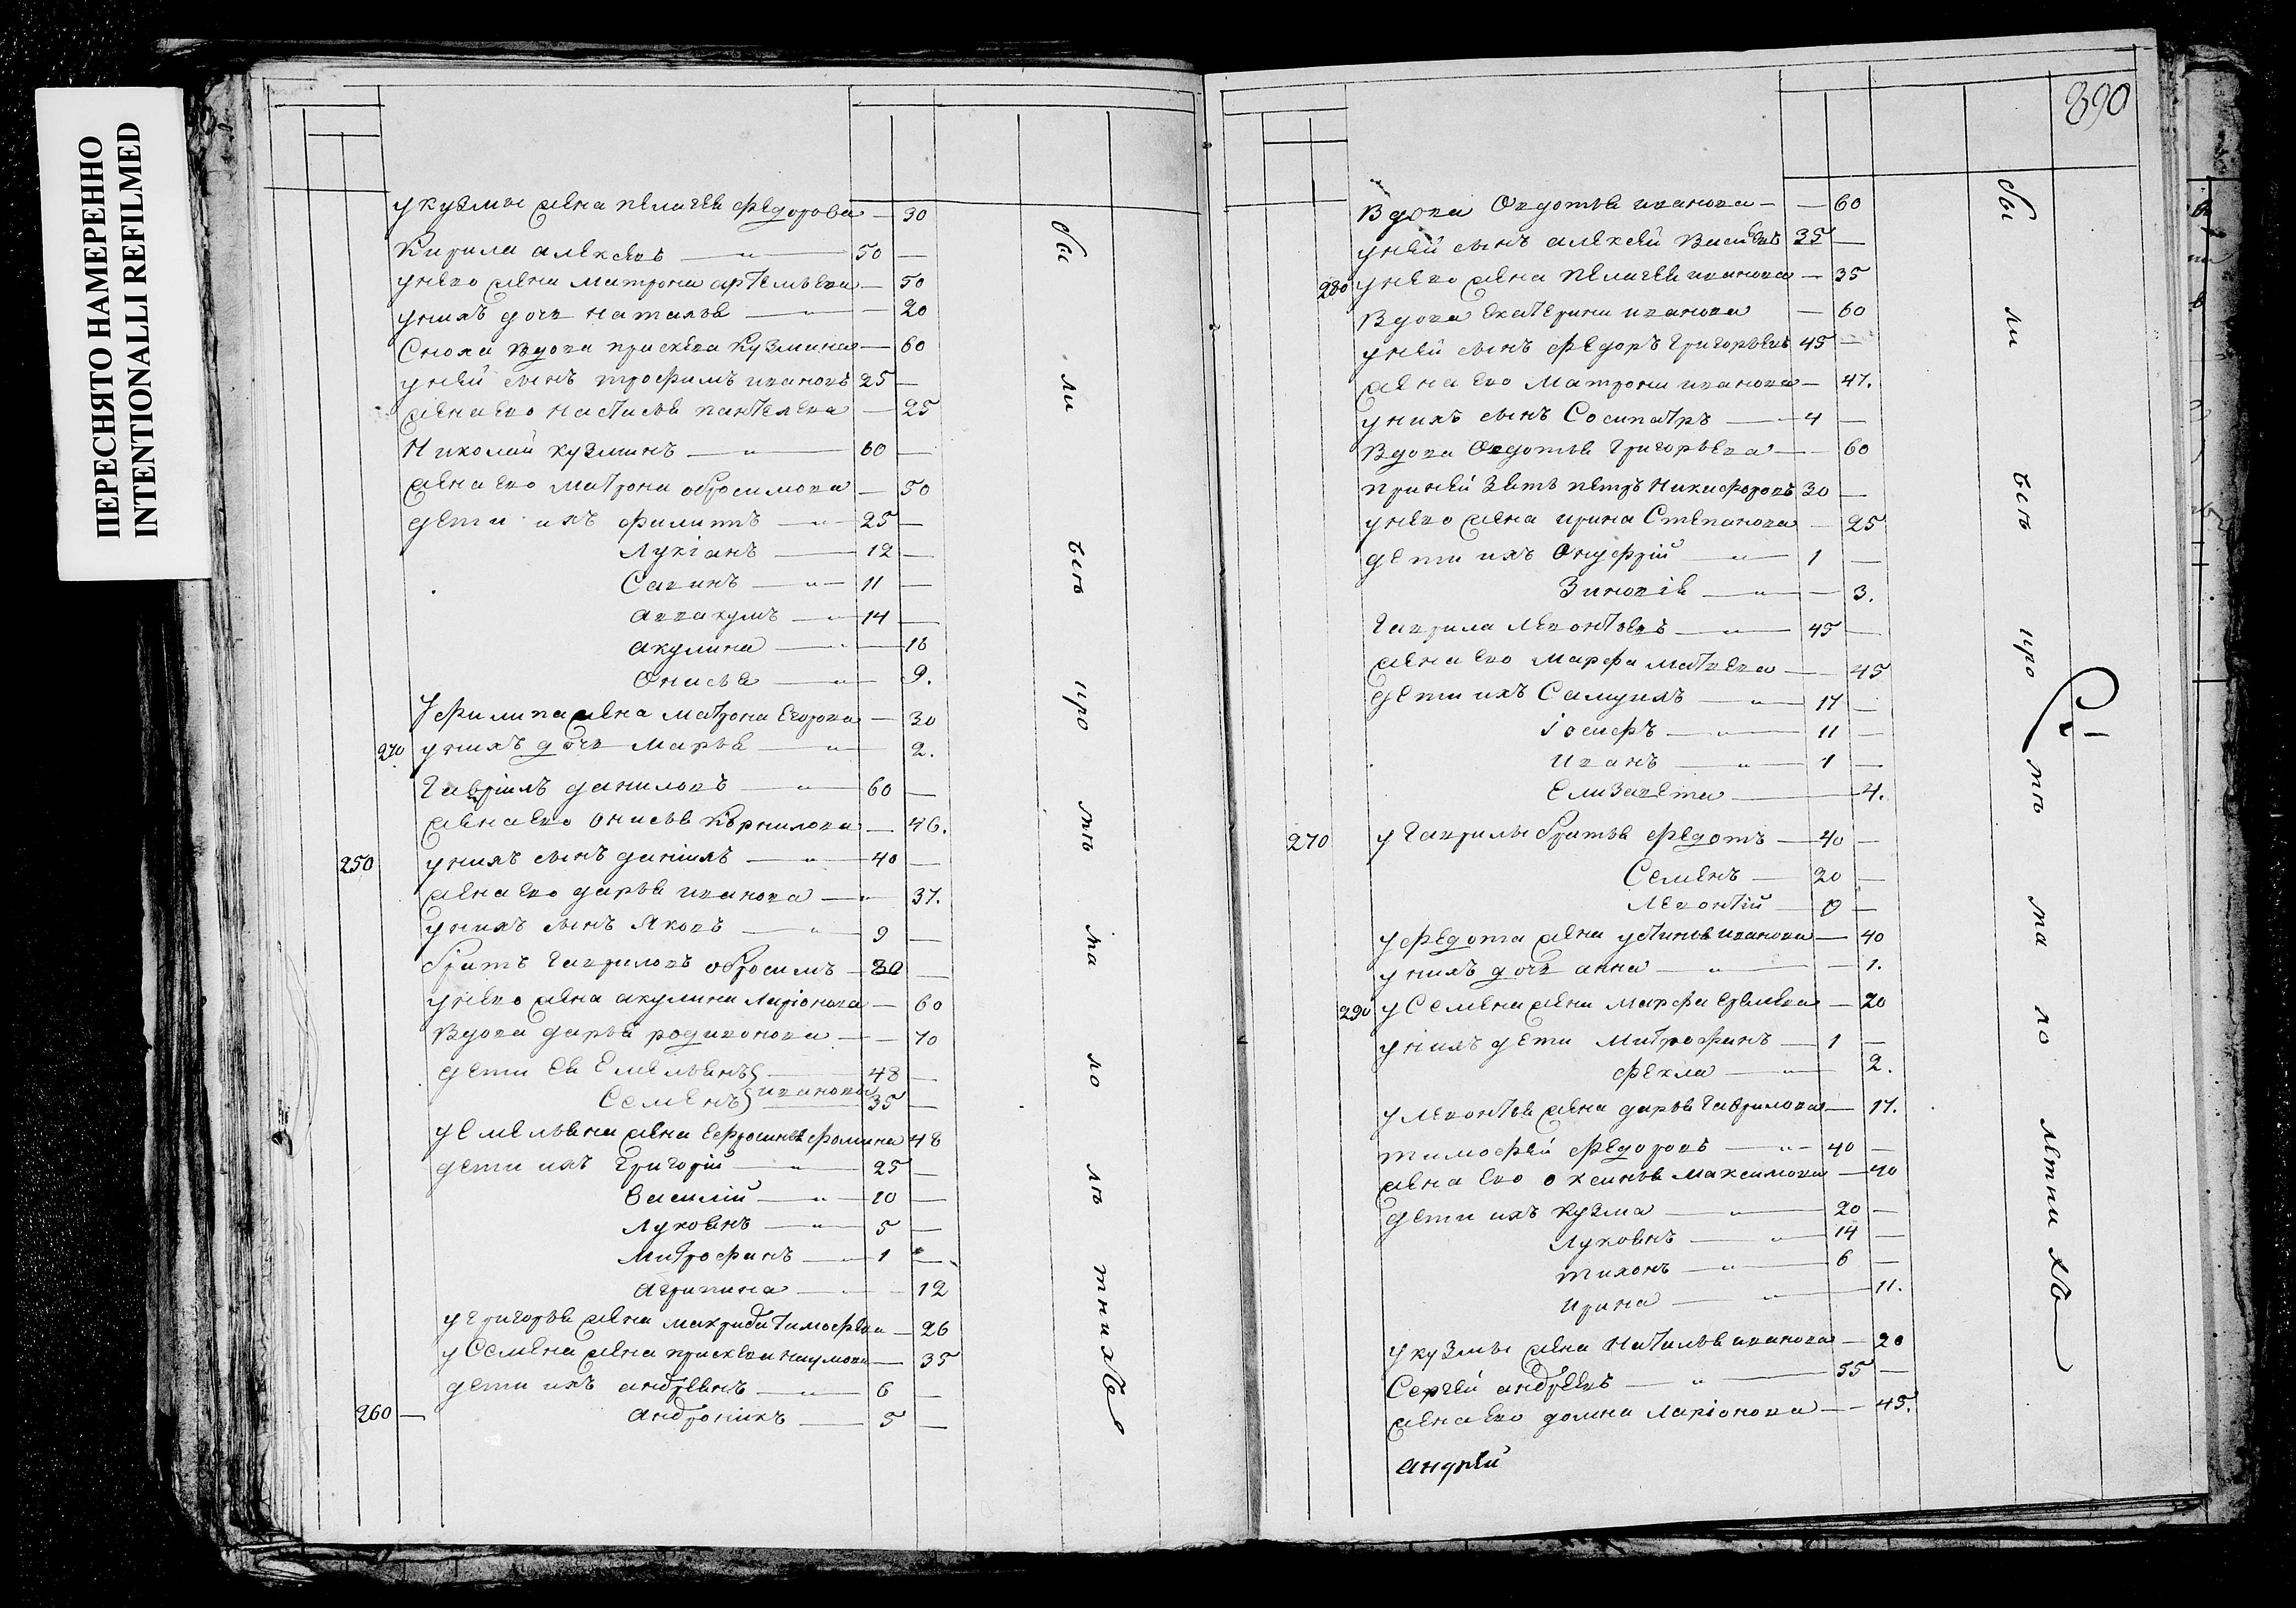 ПЕРЕСНЯТО НАМЕРЕННО
INTENTIONALLI REFILMED
у кузмы жена пелагея федорова — 30
Кирила алексеевъ — 50 —
у нево жена матрона артемьева — 50
у нихъ дочь наталья — 20
Сноха вдова прасковья кузмина — 60
у ней сынъ трофимъ ивановъ 25 —
жена ево настасья пантелева — 25
Николай кузминъ — 60 —
жена ево матрона обросимова — 50
дети ихъ филипъ — 25 —
Лукіанъ — 12 —
Савинъ — 11 —
аввакумъ — 14 —
акулина — 16
Онисья — 9.
У филипа жена матрона Егорова — 30
270 у нихъ дочь марья — 2.
Гавріилъ даниловъ — 60 —
жена ево онисья корнилова — 46.
250 у нихъ сынъ даніилъ — 40 —
жена ево дарья иванова — 37.
у нихъ сынъ Яковъ — 9 —
братъ гавриловъ обросимъ — 30 —
у нево жена акулина ларіонова — 60
Вдова дарья родионова — 70
дети ея Емельянъ — 48 —
Семенъ } ивановы 35 —
у емельяна жена ефросинья фомина 48
дети ихъ Григорій — 25 —
Василій — 10 —
Лукоянъ — 5 —
Митрофанъ — 1 —
Агрипина — 12
у григорья жена макрида тимофеева — 26
у Семена жена прасковья наумова — 35
дети ихъ андреянъ — 6 —
260 — андроникъ — 5 —
бы ли всѣ про тѣ ма ло лѣ тнихъ
390
Вдова Овдотья иванова — 60
у ней сынъ алексей васильевъ 35 —
280 у нево жена пелагея иванова — 35
Вдова екатерина иванова — 60
у ней сынъ федоръ григорьевъ 45 —
жена ево матрона иванова — 47.
у нихъ сынъ Сосипатръ — 4 —
Вдова Овдотья григорьева — 60
при ней зять петръ Никифоровъ 30 —
у нево жена ирина Степанова — 25
дети ихъ Онуфрій — 1 —
Зиновія — 3.
Гаврила левонтьевъ — 45 —
жена ево марфа матвеева — 45
дети ихъ Самуилъ — 17 —
іосифъ — 11 —
иванъ — 1 —
елизавета — 4.
270 у гаврилы братья федотъ — 40 —
Семенъ — 20 —
левонтій —
у федота жена устинья иванова — 40
у нихъ дочь анна — 1.
290 у Семена жена марфа еремеева — 20
у нихъ дети митрофанъ — 1 —
фекла — 2.
у левонтья жена дарья гаврилова — 17.
тимофей федоровъ — 40 —
жена ево оксинья максимова — 40
дети ихъ кузма — 20 —
лукоянъ — 14 —
тихонъ — 6 —
ирина — 11.
у кузмы жена наталья иванова — 20
Сергей андреевъ — 55 —
жена ево домна ларіонова — 45.
андрей
бы ли всѣ про тѣ ма ло лѣтнихъ